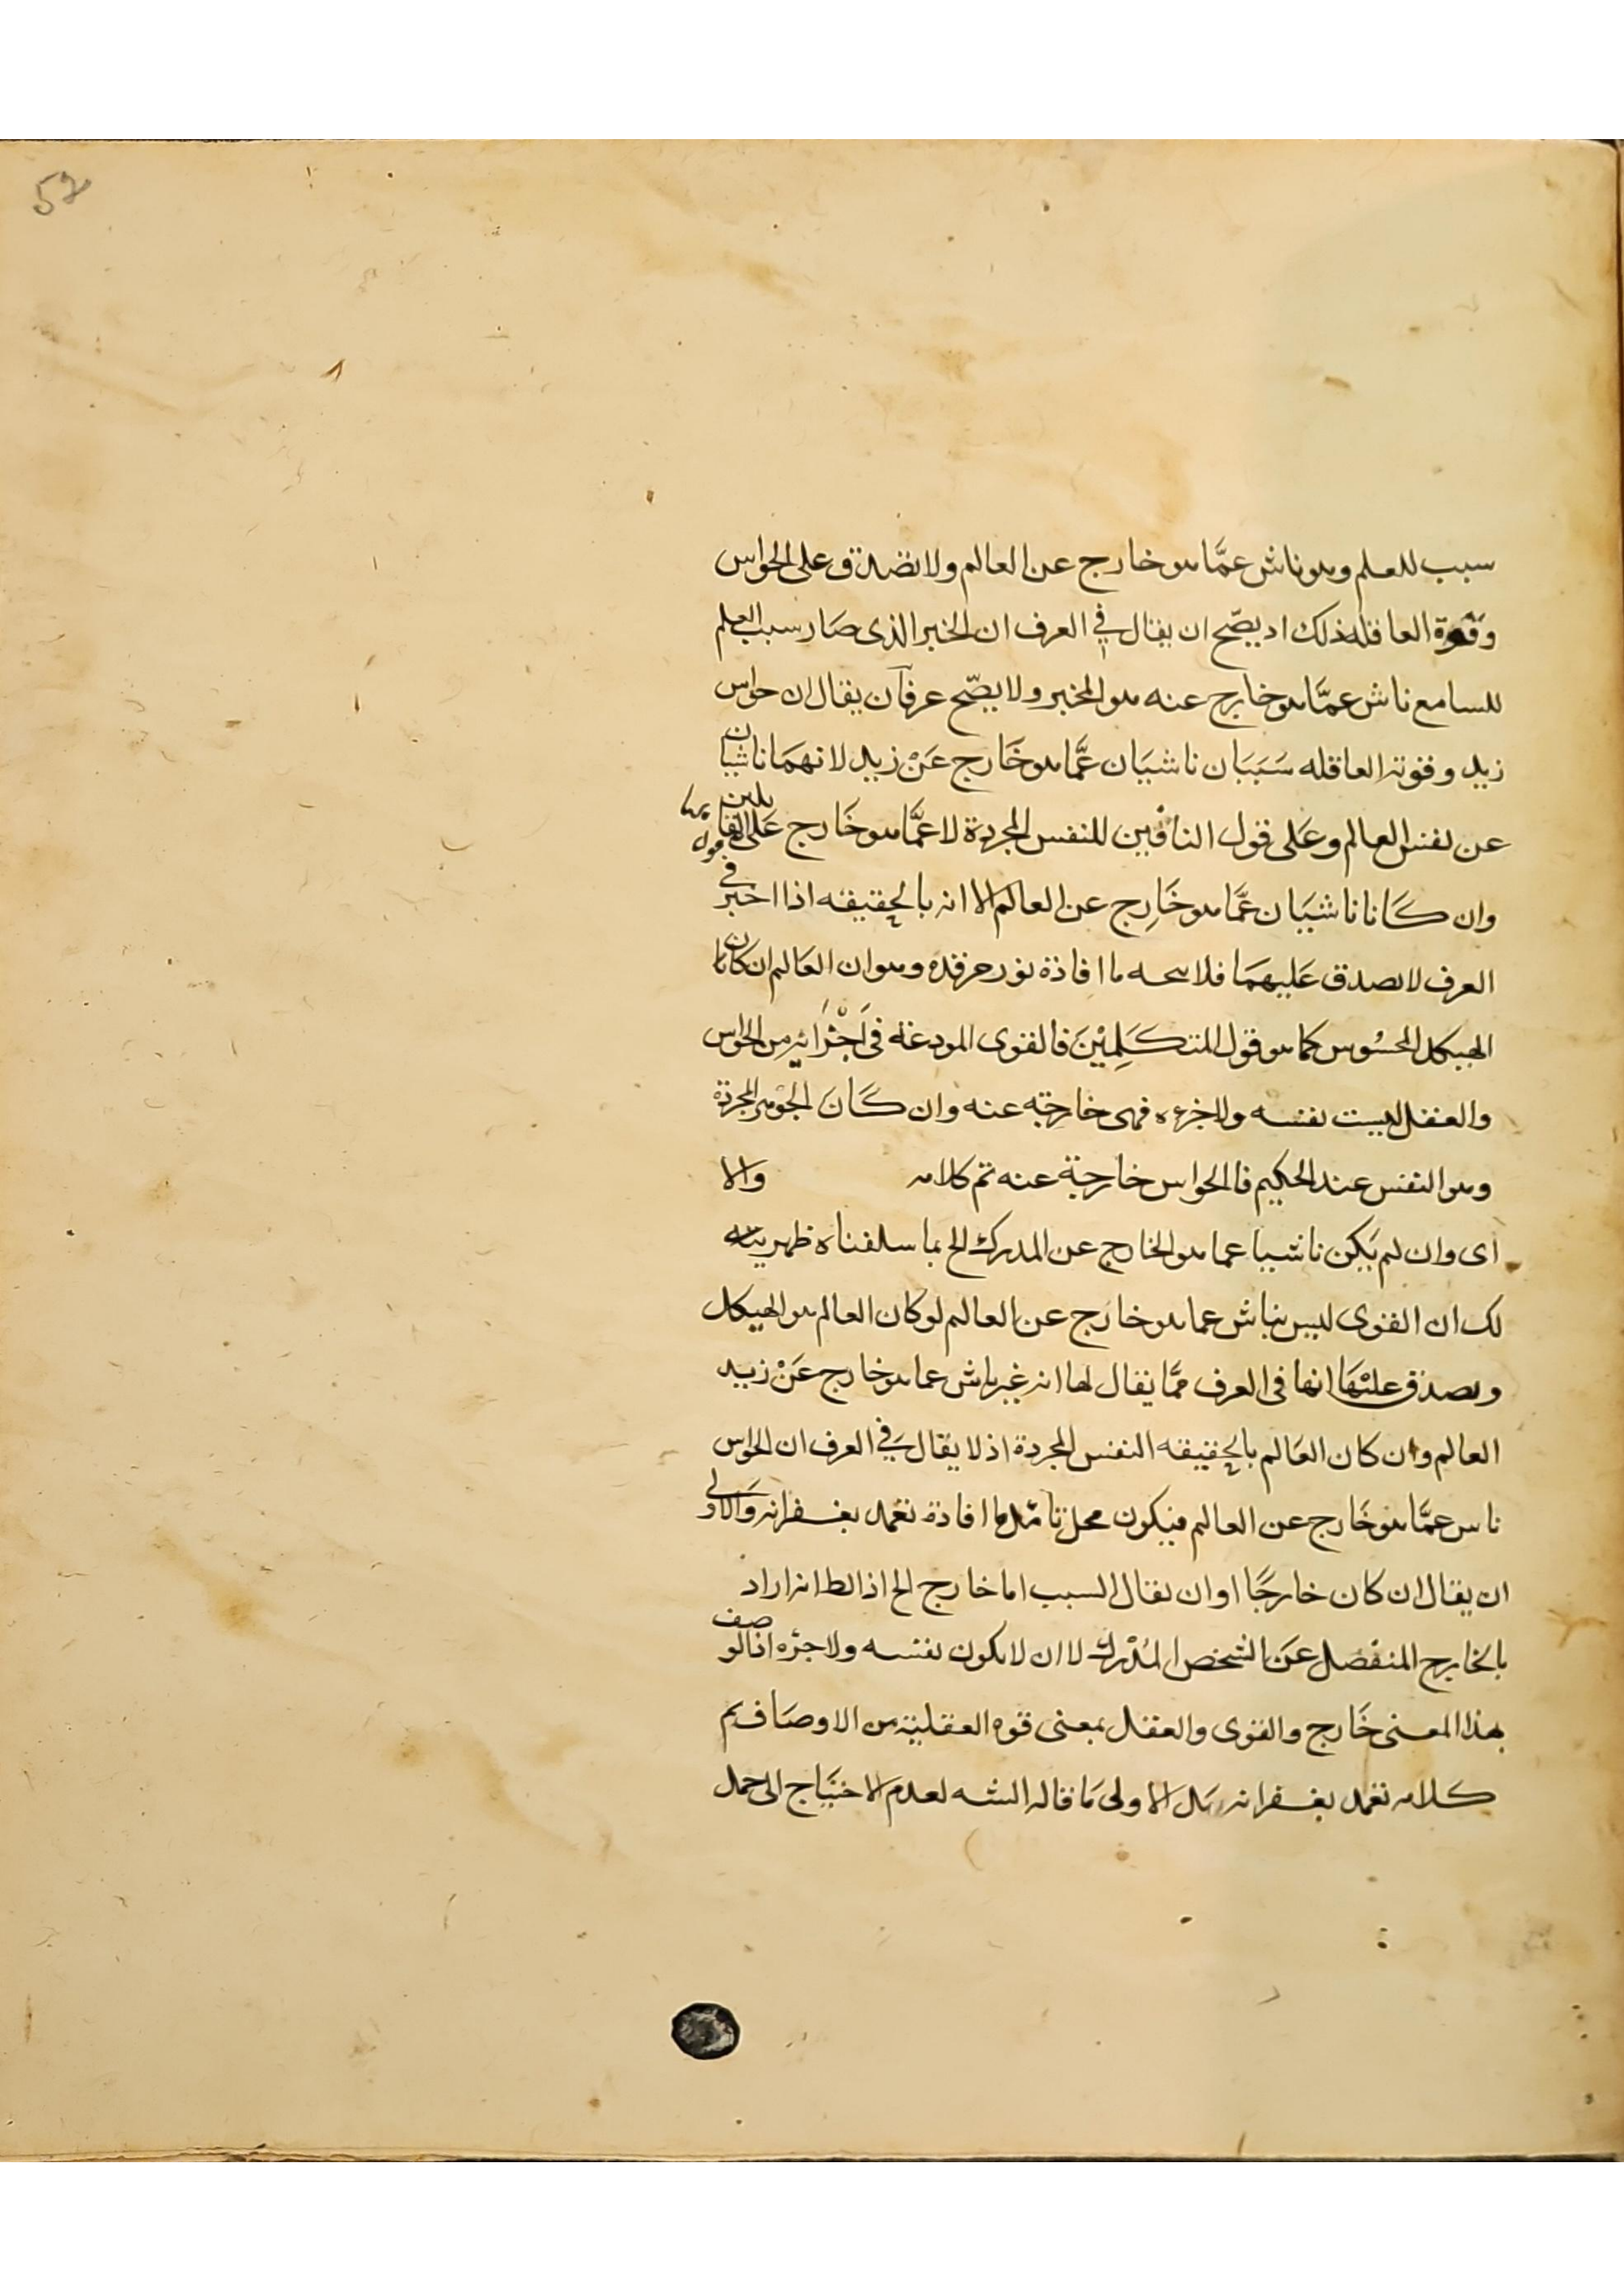 52
سبب للعلم وهو ناش عمّا هو خارج عن العالم ولا تصدق على الحواس
وقوة العاقله ذلك اد يصّح ان يقال في العرف ان الخبر الذى صار سبب العلم
للسامع ناش عمّا هو خارج عنه هو المخبر ولا يصّح عرفا ان يقال ان حواس
زيد وقوته العاقله سَبَبَان ناشيَان عمَّا هو خَارج عَنْ زيد لانهمَا ناشيان
عن نفس العالم وعَلى قول النافين للنفس المجردة لا عمَّا هو خَارج عَلى القايلين بها
وان كَانا ناشيَان عمَّا هو خَارج عن العالم الا انه بالحقيقه اذا اخبر في
العرف لا يصدق عَليهمَا فلا ما افاده نور مرقده وهو ان العَالم ان كان
الهيكل المحسُوس كما هو قول المتكَلِميْنَ فالقوى المودعة فى اَجْزَائه من الحواس
والعقل ليست نفسه ولا جزءه فهى خارجة عنه وان كَانَ الجوْهر المجردة
وهو النفس عند الحكيم فالحواس خارجة عنه تم كلامه والا
اى وان لم يَكن ناشيا عما هو الخارج عن المدرك الخ بما سلفناه ظهر
لك ان القوى ليس بناش عما هو خارج عن العالم لو كان العالم هو الهيكل
ويصدق عليْهَا انها فى العرف ممَّا يقال لها انه غير ناش عما هو خارج عَنْ زيد
العالم وان كان العَالم بالحقيقه النفس المجردة اذ لا يقال في العرف ان الحواس
ناس عمَّا هو خَارج عن العالم فيكون محل تامّل ما افادة تغمد بغفرانه وَالاولى
ان يقال ان كان خارجًا او ان يقال السبب اما خارج الخ اذ الط انه اراد
بالخَارج المنفصل عَن الشخص المُدْرك لا ان لا يكون نفسه ولا جزه اذ الوصف
بهذا المعنى خَارج والقوى والعقل بمعنى قوه العقلية من الاوصَاف تم
كلامه تغمد بغفرانه بل الاولى مَا قاله الشه لعدم الاحتيَاج الى حمل